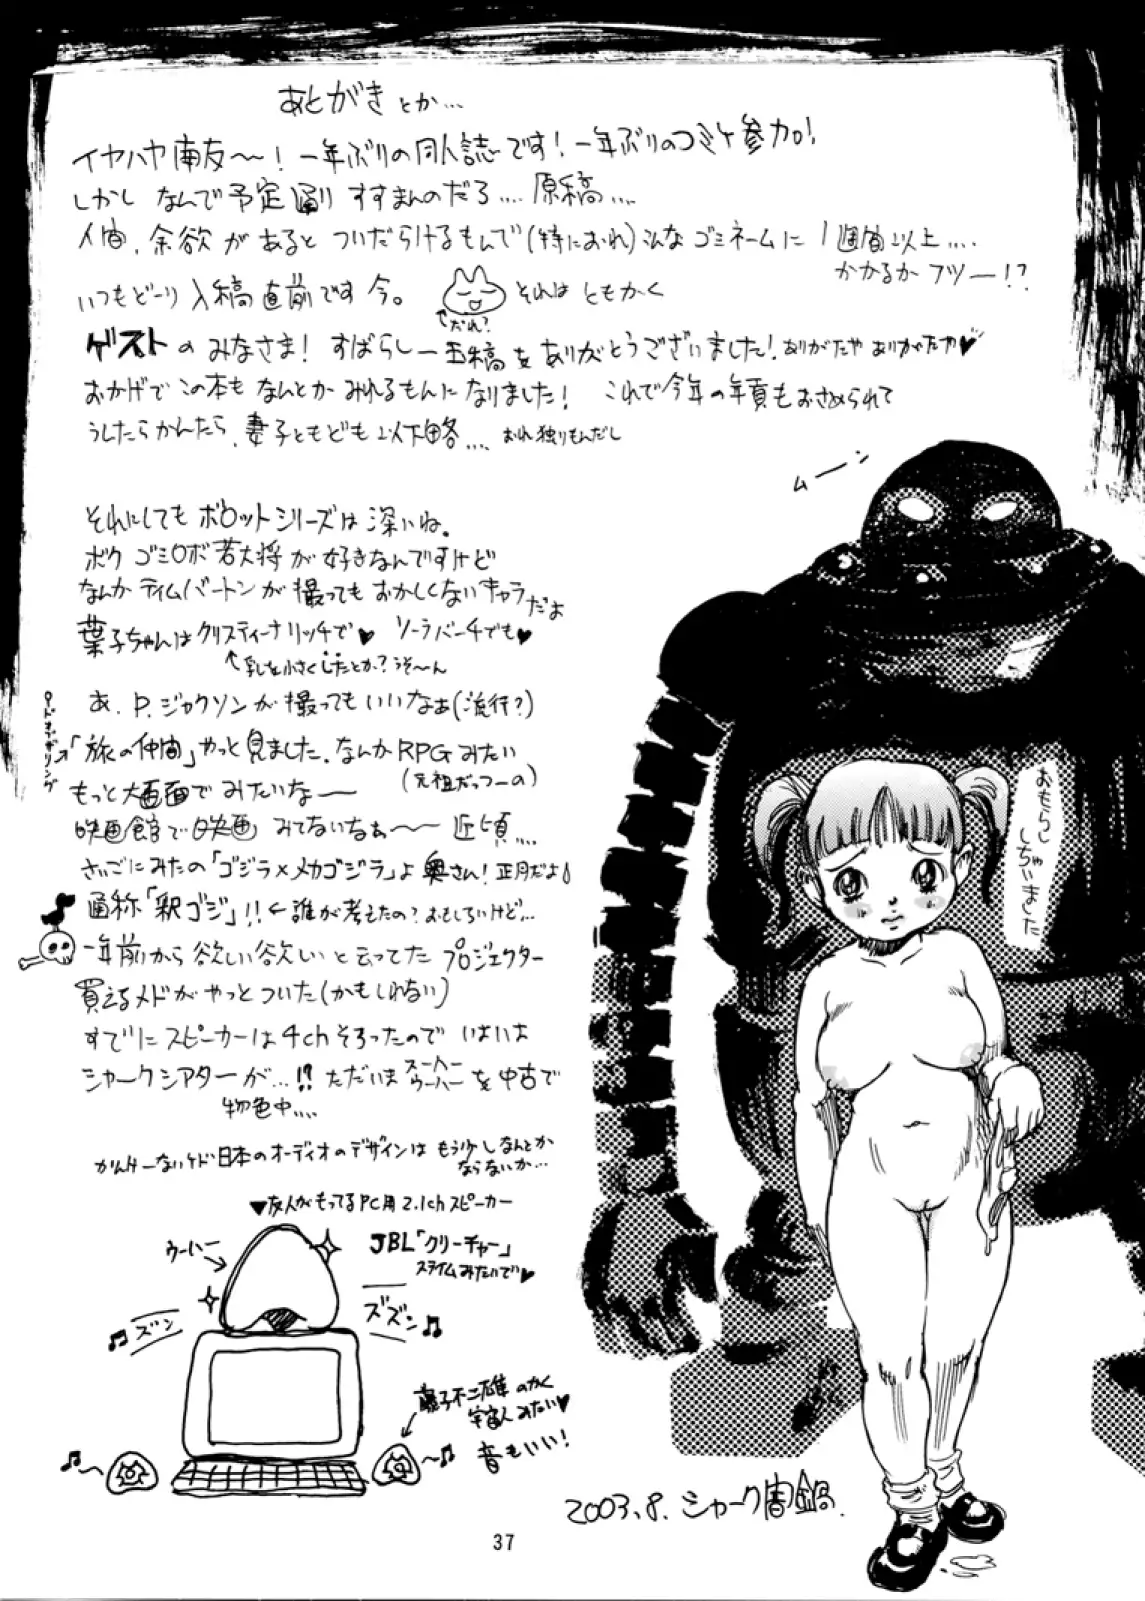 あとがきとか…
イヤハヤ南友〜！一年ぶりの同人誌です！一年ぶりのコミケ参加！
しかし なんで予定通り すすまんのだろ…. 原稿….
人間、余欲があると ついだらけるもんで（特におれ）こんな ゴミネームに 1週間以上….
かかるか フツー！？
いつもどーり 入稿直前です 今。 それは ともかく
↑だれ？
ゲストの みなさま！ すばらしー玉稿を ありがとうございました！ ありがたや ありがたや♥
おかげで この本も なんとか みれるもんに なりました！ これで今年の年貢もおさめられて
うしたらかんたら、妻子ともども 以下略…. おれ 独りもんだし
それにしても ボロットシリーズは 深いね。
ボク ゴミロボ若大将が 好きなんですけど
なんか ティムバートンが 撮っても おかしくないキャラだよ
葉子ちゃんは クリスティーナリッチで♥ ソーラバーチでも♥
↑乳を小さくしたとか？うそ〜ん
あ、P.ジャクソンが撮ってもいいなぁ（流行？）
ロードオブザリング
「旅の仲間」やっと見ました、なんかRPGみたい
（元祖だっつーの）
もっと大画面で みたいなー
映画館で映画 みてないなぁ〜〜 近頃….
さいごにみたの「ゴジラ×メカゴジラ」よ 奥さん！正月だよ！
通称「釈ゴジ」！！←誰が考えたの？おもしろいけど…
一年前から 欲しい欲しいと云ってた プロジェクター
買えるメドが やっと ついた（かもしれない）
すでに スピーカーは 4ch そろったので いよいよ
シャークシアターが…！？ ただいま スーパーウーハーを 中古で
物色中….
かんけーないケド 日本のオーディオのデザインは もう少しなんとか
ならないか…
▼友人がもってるPC用 2.1ch スピーカー
ウーハー→
JBL「クリーチャー」
スライムみたいで♥
♫ズン
ズズン♫
藤子不二雄 のかく
宇宙人みたい♥
音もいい！
ムーン
2003.8. シャーク闇鍋.
37